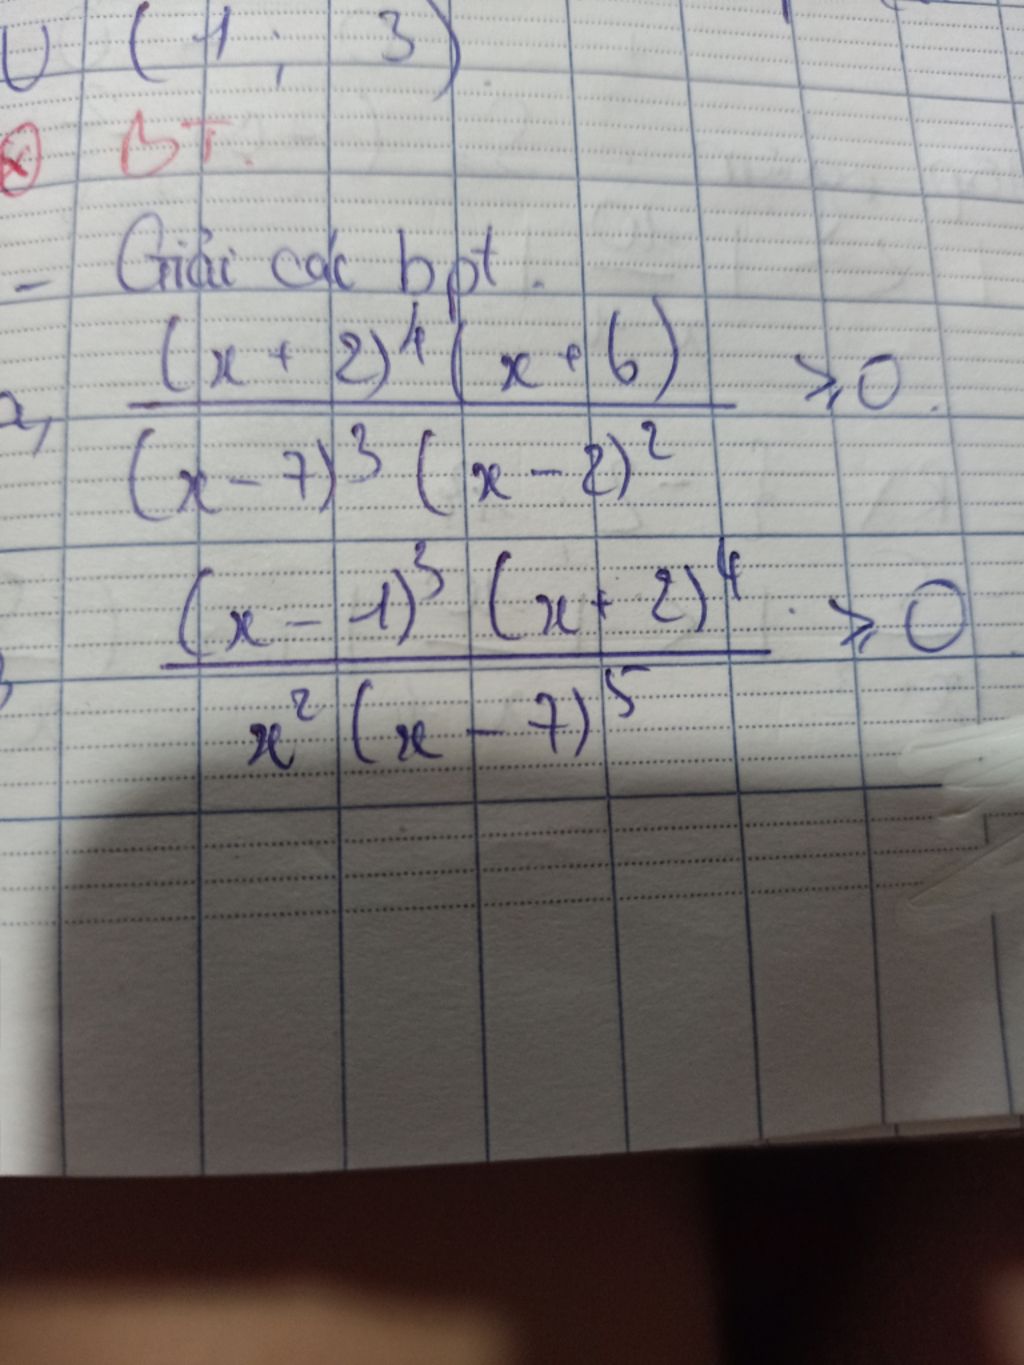 U (1; 3)
⊗ BT.
- Giải các bpt.
(x + 2)⁴ (x + 6)
a, ⩾ 0.
(x - 7)³ (x - 2)²
(x - 1)³ (x + 2)⁴
⩾ 0
x² (x - 7)⁵